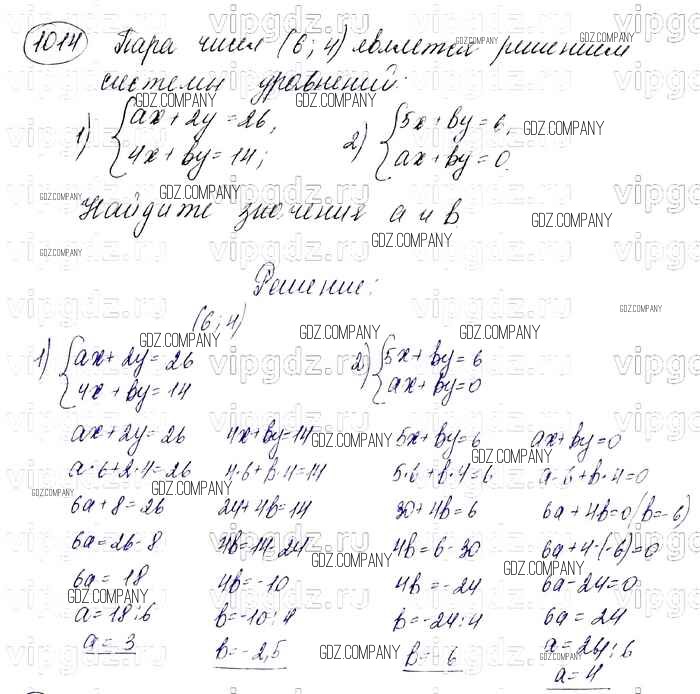 1014 Пара чисел (6; 4) является решением
системы уравнений:
1) { ax + 2y = 26,
4x + by = 14;
2) { 5x + by = 6,
ax + by = 0.
Найдите значения a и b
Решение:
(6; 4)
1) { ax + 2y = 26
4x + by = 14
2) { 5x + by = 6
ax + by = 0
ax + 2y = 26
a·6 + 2·4 = 26
6a + 8 = 26
6a = 26 - 8
6a = 18
a = 18 : 6
a = 3
4x + by = 14
4·6 + b·4 = 14
24 + 4b = 14
4b = 14 - 24
4b = -10
b = -10 : 4
b = -2,5
5x + by = 6
5·6 + b·4 = 6
30 + 4b = 6
4b = 6 - 30
4b = -24
b = -24 : 4
b = -6
ax + by = 0
a·6 + b·4 = 0
6a + 4b = 0 (b = -6)
6a + 4·(-6) = 0
6a - 24 = 0
6a = 24
a = 24 : 6
a = 4
GDZ.COMPANY
vipgdz.ru